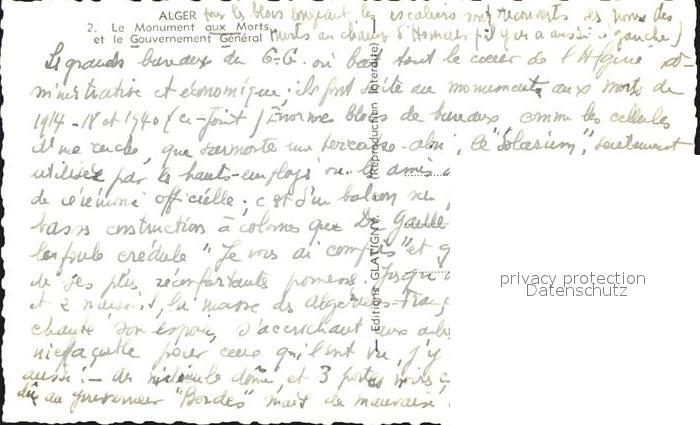 ALGER
2. Le Monument aux Morts
et le Gouvernement Général
sur les blocs les escaliers sont recouverts des noms des
morts au champ d'Honneur (il y en a aussi à gauche)
Les grands bureaux du G.G. où bat tout le cœur de l'Algérie ad-
ministrative et économique; ils font suite au monument aux morts de
1914-18 et 1940 (ci-joint) Énormes blocs de bureaux comme les cellules
d'une ruche, que surmonte une terrasse-abri, le "solarium", seulement
utilisée par les hauts-employés ou les amis
de cérémonie officielle; c'est d'un balcon
basse construction à colonnes que De Gaulle
la foule crédule "Je vous ai compris" et
de ses plus réconfortantes
et 2 la masse des Algériens-Franç
chanté son espoir, s'accrochant aux
ineffaçable pour ceux qui l'ont vu, j'y
aussi: - du ridicule dôme, et 3 portes
dû au gouverneur "Bordes" mais de mauvaise
Editions GLATIGNY. (Reproduction interdite)
privacy protection
Datenschutz